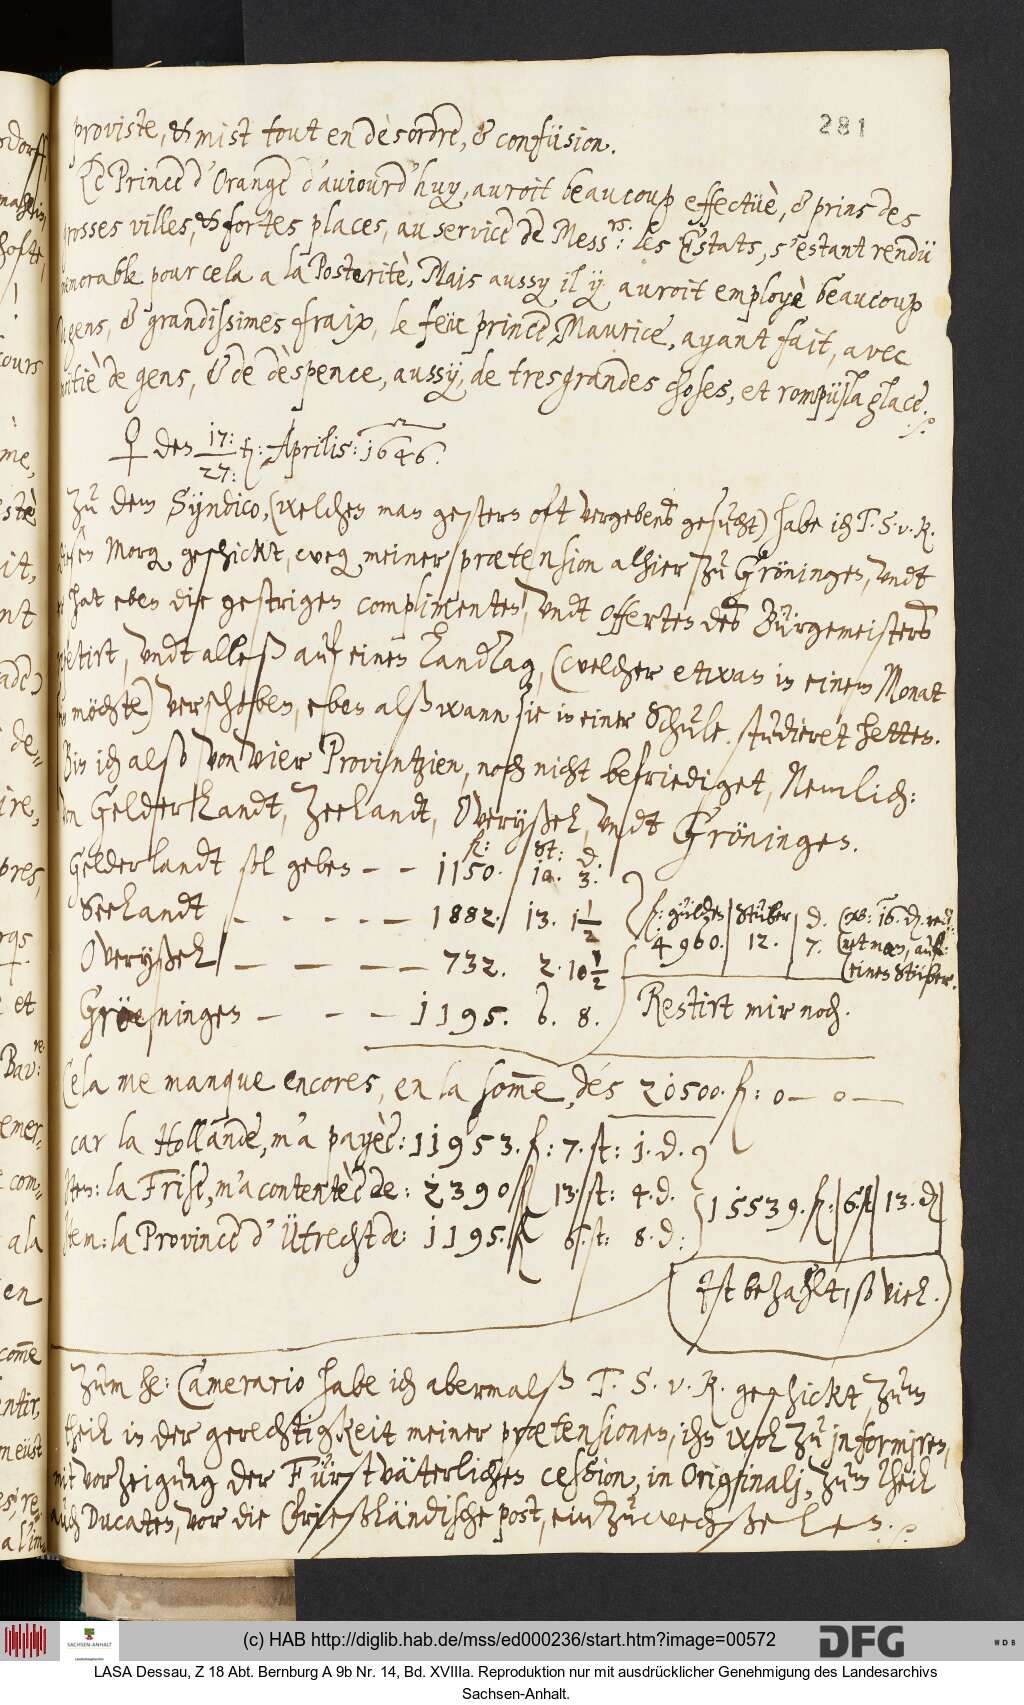 281
proviste, & mist tout en dèsordre, & confüsion.
Le Prince d'Orange d'auiourd'huy, auroit beaucoup effectüè, & prins des
grosses villes, & fortes places, au service de Mess:rs les Estats, s'estant rendü
memorable pour cela a la Posteritè, Mais aussy il ÿ auroit employè beaucoup
de gens, & grandissimes fraix, le feüe prince Maurice, ayant fait, avec
moitiè de gens, & de dèspence, aussy, de tresgrandes choses, et rompü la glace.
♀ den 17: / 27: Aprilis: 1646.
Zu dem Syndico, (welchen man gestern oft vergebens gesucht) habe ich T. S. v. R.
diesen Morg. geschickt, weg. meiner prætension alhier zu Gröningen, undt
er hat eben die gestrigen complimenten, undt offerten des Bürgemeisters
repetirt, undt alleß auf einen Landtag, (welcher etwan in einem Monat
sein möchte) verschoben, eben alß wann sie in einer Schule studieret hetten.
Bin ich also von vier Provintzien, noch nicht befriediget, Nemlich:
von Gelderlandt, Zeelandt, Overyßel, undt Gröningen.
fl: St: d.
Gelderlandt sol geben – – 1150. 10. 3.
Seelandt – – – – – 1882. 13. 1 1/2
Overyßel – – – – 732. 2. 10 1/2
Gröeningen – – – 1195. 6. 8.
fl: gülden Stüber d. (oder 16. d. rech=
4960. 12. 7. (net man, auf
(einen Stüber.
Restirt mir noch.
Cela me manque encores, en la some, dés 20500. fl: 0 – 0 –
car la Hollande, m'a payèe: 11953. f: 7. st: 1. d.
Item: la Frise, m'a contentèe de: 2390 fl 13. st: 4. d.
Item: la Province d'Ütrecht de: 1195. fl 6. st: 8. d:
15539. fl: 6. st 13. d
Ist bezahlt, so viel.
Zum he: Camerario habe ich abermalß T. S. v. R. geschickt, zum
theil in der gerechtigkeit meiner prætensionen, ihn wol zu informiren,
mit vorzeigung der Fürstväterlichen cession, in Originali, zum theil
auch Ducaten, vor die Frießländische post, einzuwechßelen.
(c) HAB http://diglib.hab.de/mss/ed000236/start.htm?image=00572
SACHSEN-ANHALT
DFG
WDB
LASA Dessau, Z 18 Abt. Bernburg A 9b Nr. 14, Bd. XVIIIa. Reproduktion nur mit ausdrücklicher Genehmigung des Landesarchivs
Sachsen-Anhalt.